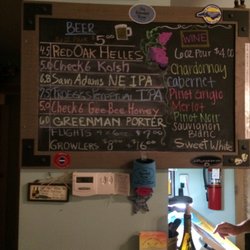 BEER
5.00
4.5 RED OAK HELLES
5.0 Check 6 Kolsh
6.8 Sam Adams NE IPA
IPA
5.0 Check 6 Gee Bee Honey
6.0 GREENMAN PORTER
FLIGHTS $7.00
GROWLERS $8 $16.00
WINE
6 oz Pour $4.00
Chardonnay
Cabernet
Pinot Grigio
Merlot
Pinot Noir
Sauvignon
Blanc
Sweet White